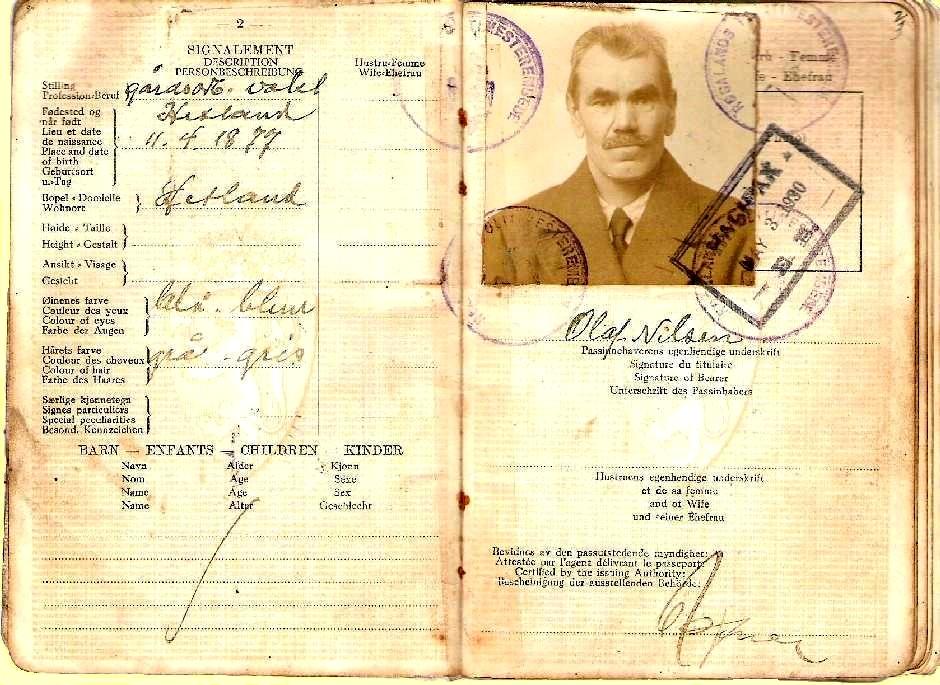 — 2 —
SIGNALEMENT
DESCRIPTION
PERSONBESCHREIBUNG
Hustru-Femme
Wife-Ehefrau
Stilling
Profession-Beruf
Fødested og
når født
Lieu et date
de naissance
Place and date
of birth
Geburtsort
u.-Tag
Hetland
11. 4. 1877
Bopel - Domicile
Wohnort
Hetland
Høide - Taille
Height - Gestalt
Ansikt - Visage
Gesicht
Øinenes farve
Couleur des yeux
Colour of eyes
Farbe der Augen
blå - bleu
Hårets farve
Couleur des cheveux
Colour of hair
Farbe des Haares
grå - gris
Særlige kjennetegn
Signes particuliers
Special peculiarities
Besond. Kennzeichen
BARN — ENFANTS — CHILDREN — KINDER
Navn Alder Kjønn
Nom Age Sexe
Name Age Sex
Name Alter Geschlecht
ROGALANDS
POLITIMESTEREMBEDE
- Femme
- Ehefrau
MAY 3 1930
Olaf Nilsen
Passinnehaverens egenhendige underskrift
Signature du titulaire
Signature of Bearer
Unterschrift des Passinhabers
Hustruens egenhendige underskrift
et de sa femme
and of Wife
und seiner Ehefrau
Bevidnes av den passutstedende myndighet:
Attestée par l'agent délivrant le passeport:
Certified by the issuing Authority:
Bescheinigung der ausstellenden Behörde: